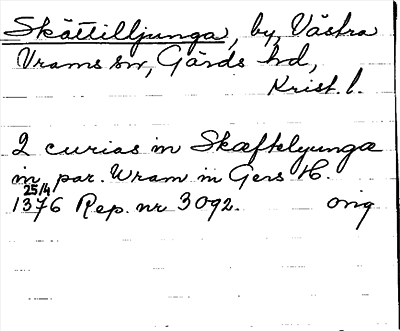 Skättilljunga, by, Västra
Vrams sn, Gärds hd,
Krist. l.
2 curias in Skæftelyunga
in par. Wram in Gers H.
25/4
1376 Rep. nr 3092. orig